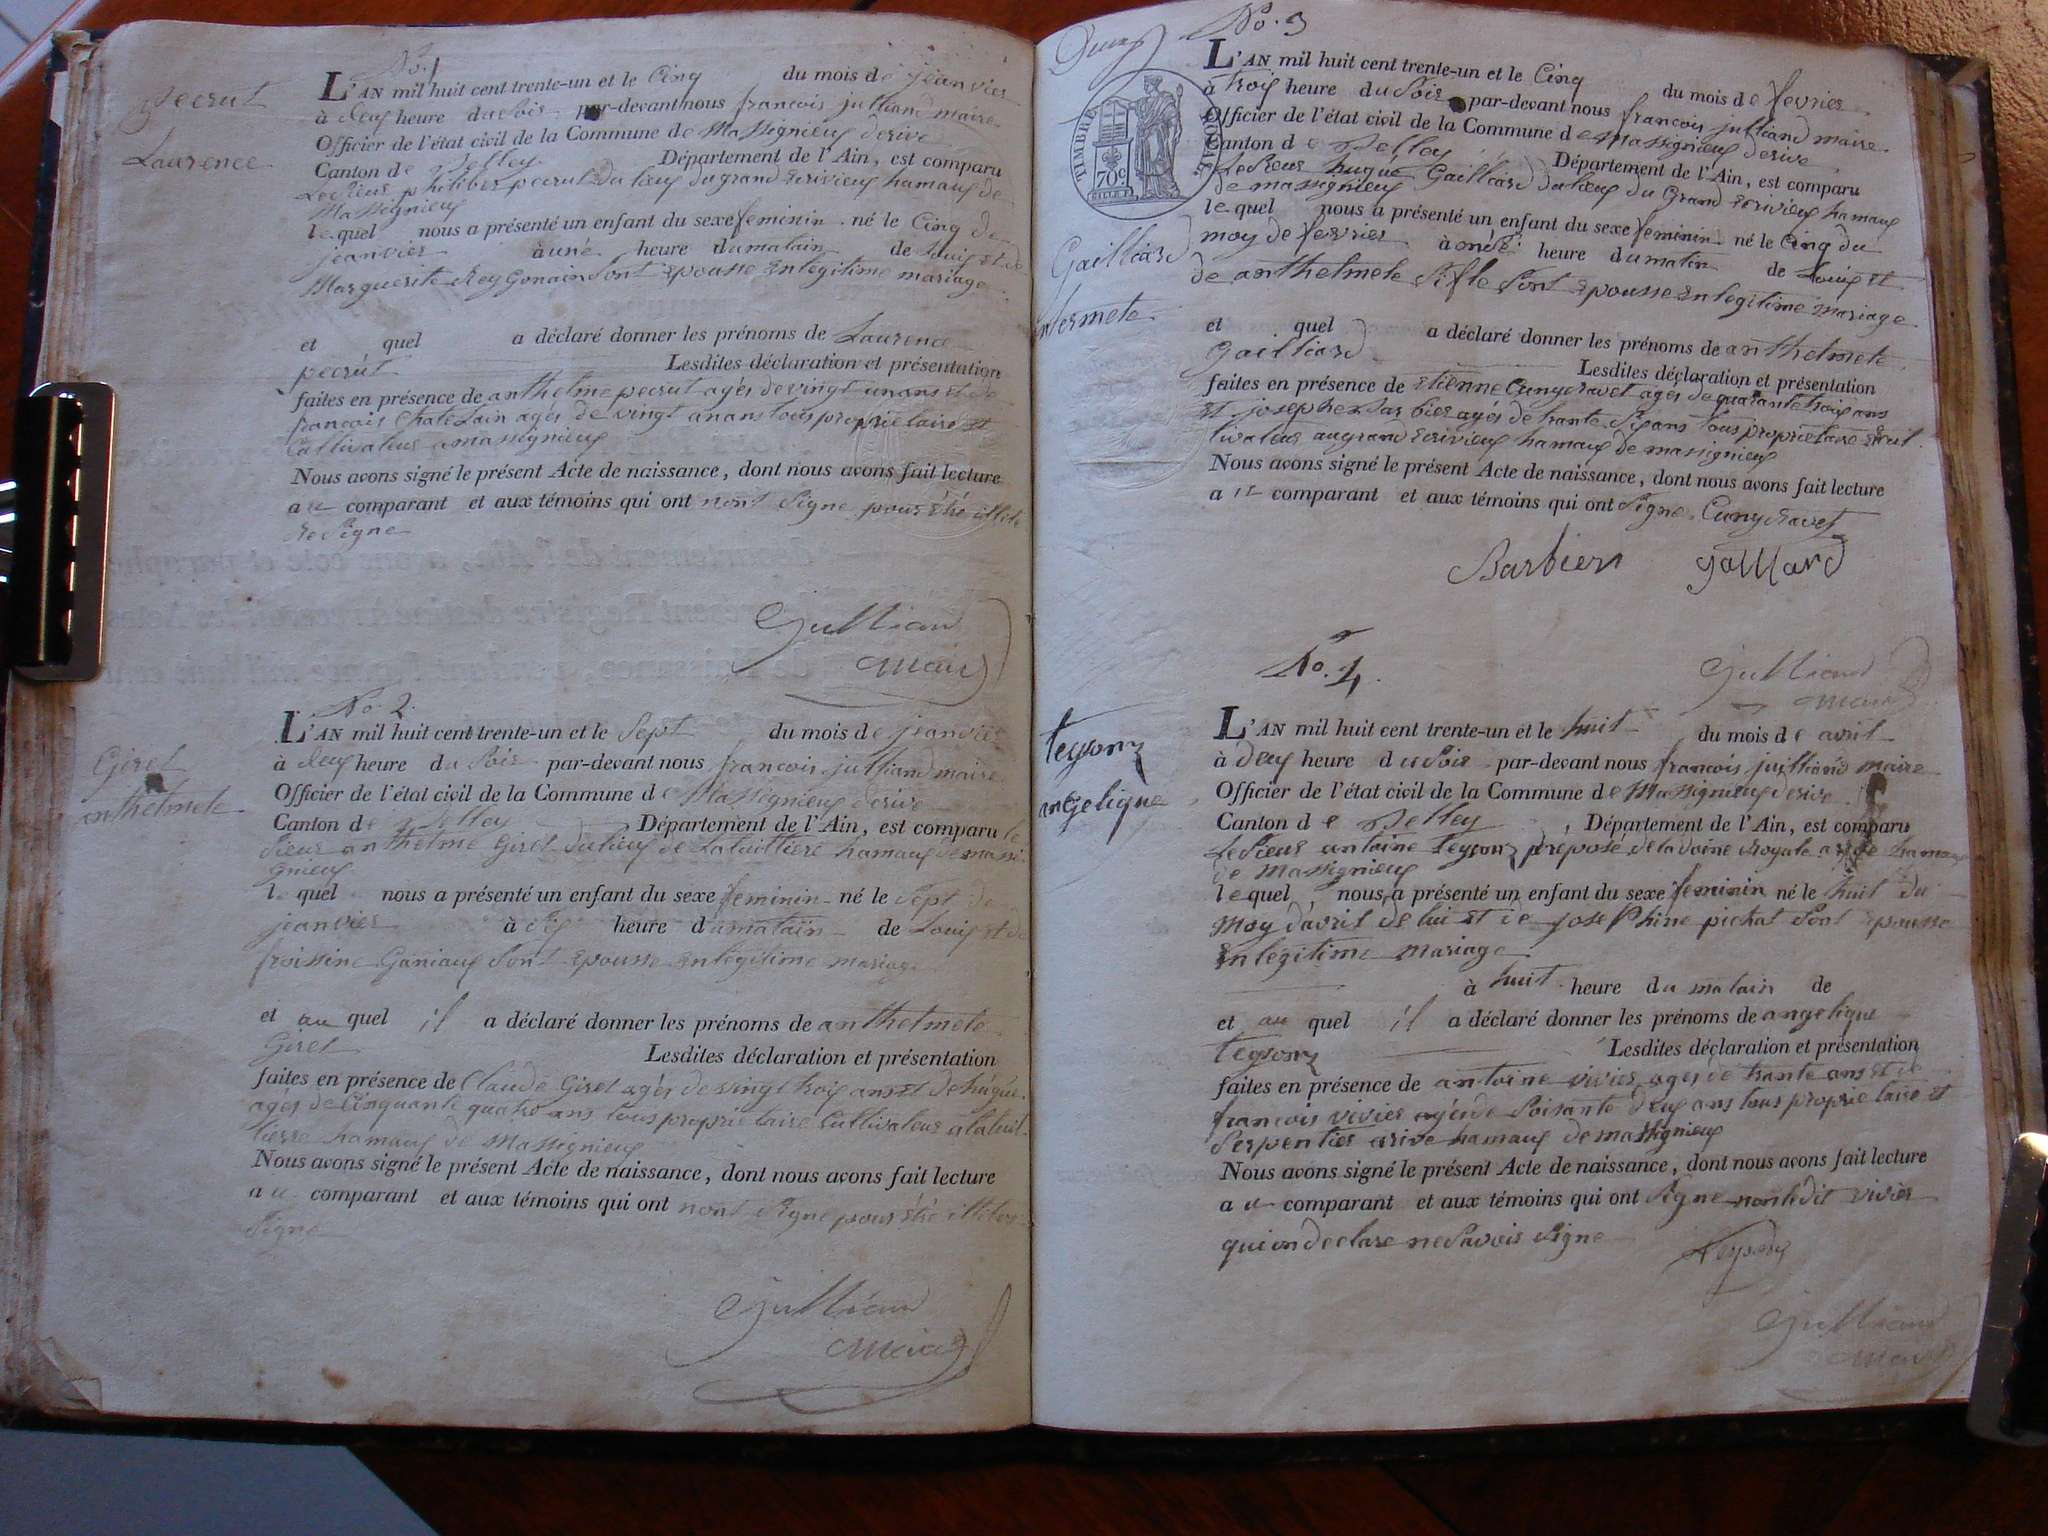 No. 1
pecrut
Laurence
L'AN mil huit cent trente-un et le Cinq du mois de jeanvier
à deux heure du Soir par-devant nous francois julliand maire
Officier de l'état civil de la Commune de Massignieux derive
Canton de Belley Département de l'Ain, est comparu
Le Sieur philiber pecrut du lieux du grand ecrivieux hamaux de
Massignieux
lequel nous a présenté un enfant du sexe feminin né le Cinq de
jeanvier à une heure du matain de Louis et de
Marguerite Rey Gonain Sont epousse en legitime mariage
et quel a déclaré donner les prénoms de Laurence
pecrut Lesdites déclaration et présentation
faites en présence de anthelme pecrut agés de vingt un ans et de
francois Chatelain agés de vingt an ans tous proprietaire et
Cultivateur a massignieux
Nous avons signé le présent Acte de naissance, dont nous avons fait lecture
au comparant et aux témoins qui ont nont Signe pour étre
de Signe
Julliand
Maire
No. 2
Giret
anthelmete
L'AN mil huit cent trente-un et le Sept du mois de jeanvier
à deux heure du Soir par-devant nous francois julliand maire
Officier de l'état civil de la Commune de Massignieux derive
Canton de Belley Département de l'Ain, est comparu le
Sieur anthelme Giret du lieux de Latuilliere hamaux de massi
gnieux
lequel nous a présenté un enfant du sexe feminin né le Sept de
jeanvier à dix heure du matain de Louis et de
froissine Ganiaux Sont epousse en legitime mariage
et au quel il a déclaré donner les prénoms de anthelmete
Giret Lesdites déclaration et présentation
faites en présence de Claude Giret agés de vingt trois ans et de hugue
agés de Cinquante quatre ans tous proprietaire Cultivateur a latuil
lierre hamaux de Massignieux
Nous avons signé le présent Acte de naissance, dont nous avons fait lecture
au comparant et aux témoins qui ont nont Signe pour étre
Signe
Julliand
Maire
No. 3
TIMBRE ROYAL
70c
Gailliard
L'AN mil huit cent trente-un et le Cinq du mois de fevrier
à trois heure du Soir par-devant nous francois julliand maire
Officier de l'état civil de la Commune de Massignieux derive
Canton de Belley Département de l'Ain, est comparu
Le Sieur hugue Gailliard du lieux du Grand ecrivieux hamaux
de massignieux
lequel nous a présenté un enfant du sexe feminin né le Cinq du
moy de fevrier à heure du matin de Louis et
de anthelmete Sifle Sont epousse en legitime mariage
et quel a déclaré donner les prénoms de anthelmete
Gailliard Lesdites déclaration et présentation
faites en présence de etienne Cunycravet agés de quarante trois ans
et josephe Barbier agés de trante Six ans tous proprietaire Cul
tivateur au grand ecrivieux hamaux de massignieux
Nous avons signé le présent Acte de naissance, dont nous avons fait lecture
au comparant et aux témoins qui ont Signe Cunycravet
Barbier gaillard
Julliand
Maire
No. 4
teyson
angelique
L'AN mil huit cent trente-un et le huit du mois de avril
à deux heure du Soir par-devant nous francois julliand maire
Officier de l'état civil de la Commune de Massignieux derive
Canton de Belley Département de l'Ain, est comparu
Le Sieur antoine teyson préposé de la doine Royale a rive hamaux
de Massignieux
lequel nous a présenté un enfant du sexe feminin né le huit du
moy d'avril de lui et de josephine pichat Sont epousse
en legitime mariage
à huit heure du matain de
et au quel il a déclaré donner les prénoms de angelique
teyson Lesdites déclaration et présentation
faites en présence de antoine vivier agés de trante ans et de
francois vivier agés de Soisante deux ans tous proprietaire et
Serpentier a rive hamaux de massignieux
Nous avons signé le présent Acte de naissance, dont nous avons fait lecture
au comparant et aux témoins qui ont Signe non ledit vivier
qui on declare ne Savoir Signe
Teyson
Julliand
Maire